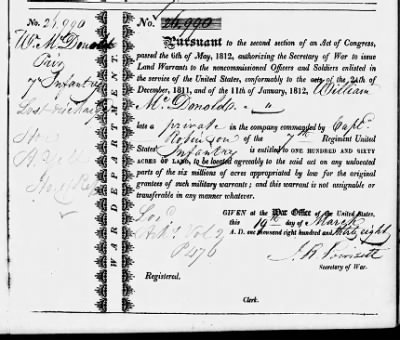 No. 26,990
Wm McDonald
Priv
7th Infantry
Lost discharge
WAR DEPARTMENT.
No. 26,990
Pursuant to the second section of an Act of Congress,
passed the 6th of May, 1812, authorizing the Secretary of War to issue
Land Warrants to the noncommissioned Officers and Soldiers enlisted in
the service of the United States, conformably to the acts of the 24th of
December, 1811, and of the 11th of January, 1812, William
McDonald
late a private in the company commanded by Capt.
Robinson of the 7th Regiment United
States' Infantry is entitled to ONE HUNDRED AND SIXTY
ACRES OF LAND, to be located agreeably to the said act on any unlocated
parts of the six millions of acres appropriated by law for the original
grantees of such military warrants; and this warrant is not assignable or
transferable in any manner whatever.
GIVEN at the War Office of the United States,
this 19th day of March
A. D. one thousand eight hundred and thirty eight
Vol. 2
P 476
J. R. Poinsett
Secretary of War.
Registered.
Clerk.